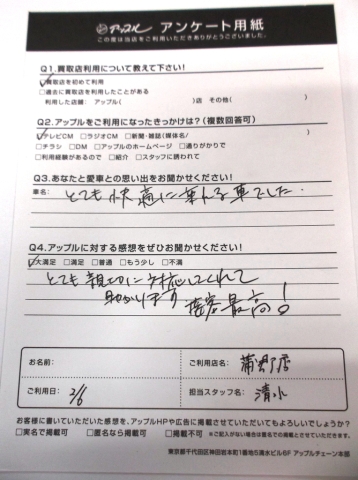 アップル アンケート用紙
この度は当店をご利用いただきありがとうございました。
Q1.買取店利用について教えて下さい!
☑買取店を初めて利用
□過去に買取店を利用したことがある
利用した店舗: アップル( )店 その他( )
Q2.アップルをご利用になったきっかけは?(複数回答可)
☑テレビCM □ラジオCM □新聞・雑誌(媒体名/ )
□チラシ □DM □アップルのホームページ □通りがかりで
□利用経験があるので □紹介 □スタッフに誘われて
Q3.あなたと愛車との思い出をお聞かせください!
車名: とても快適に乗れる車でした.
Q4.アップルに対する感想をぜひお聞かせください!
☑大満足 □満足 □普通 □もう少し □不満
とても親切に対応してくれて
助かります 接客最高!
お名前:
ご利用店名: 蒲郡店
ご利用日: 2/6
担当スタッフ名: 清水
お客様に書いていただいた感想を、アップルHPや広告に掲載させていただいてもよろしいでしょうか?
□実名で掲載可 □匿名なら掲載可 □掲載不可 ※ご記入がない場合は匿名での掲載とさせていただきます。
東京都千代田区神田岩本町1番地5清水ビル6F アップルチェーン本部